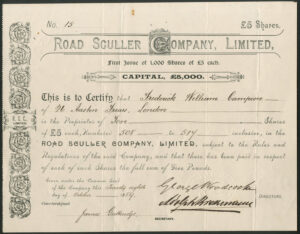 No. 15 £5 Shares.
ROAD SCULLER COMPANY, LIMITED,
First Issue of 1,000 Shares of £5 each.
CAPITAL, £5,000.
This is to Certify that Frederick William Campion
of Austin Friars, London
is the Proprietor of Shares
of £5 each, Numbered 508 to inclusive, in the
ROAD SCULLER COMPANY, LIMITED, subject to the Rules and
Regulations of the said Company, and that there has been paid in respect
of each of such Shares the full sum of Five Pounds.
Given under the Common Seal
of the Company this Twenty eighth
day of October
DIRECTORS.
Countersigned
James
SECRETARY.
R.S.C.